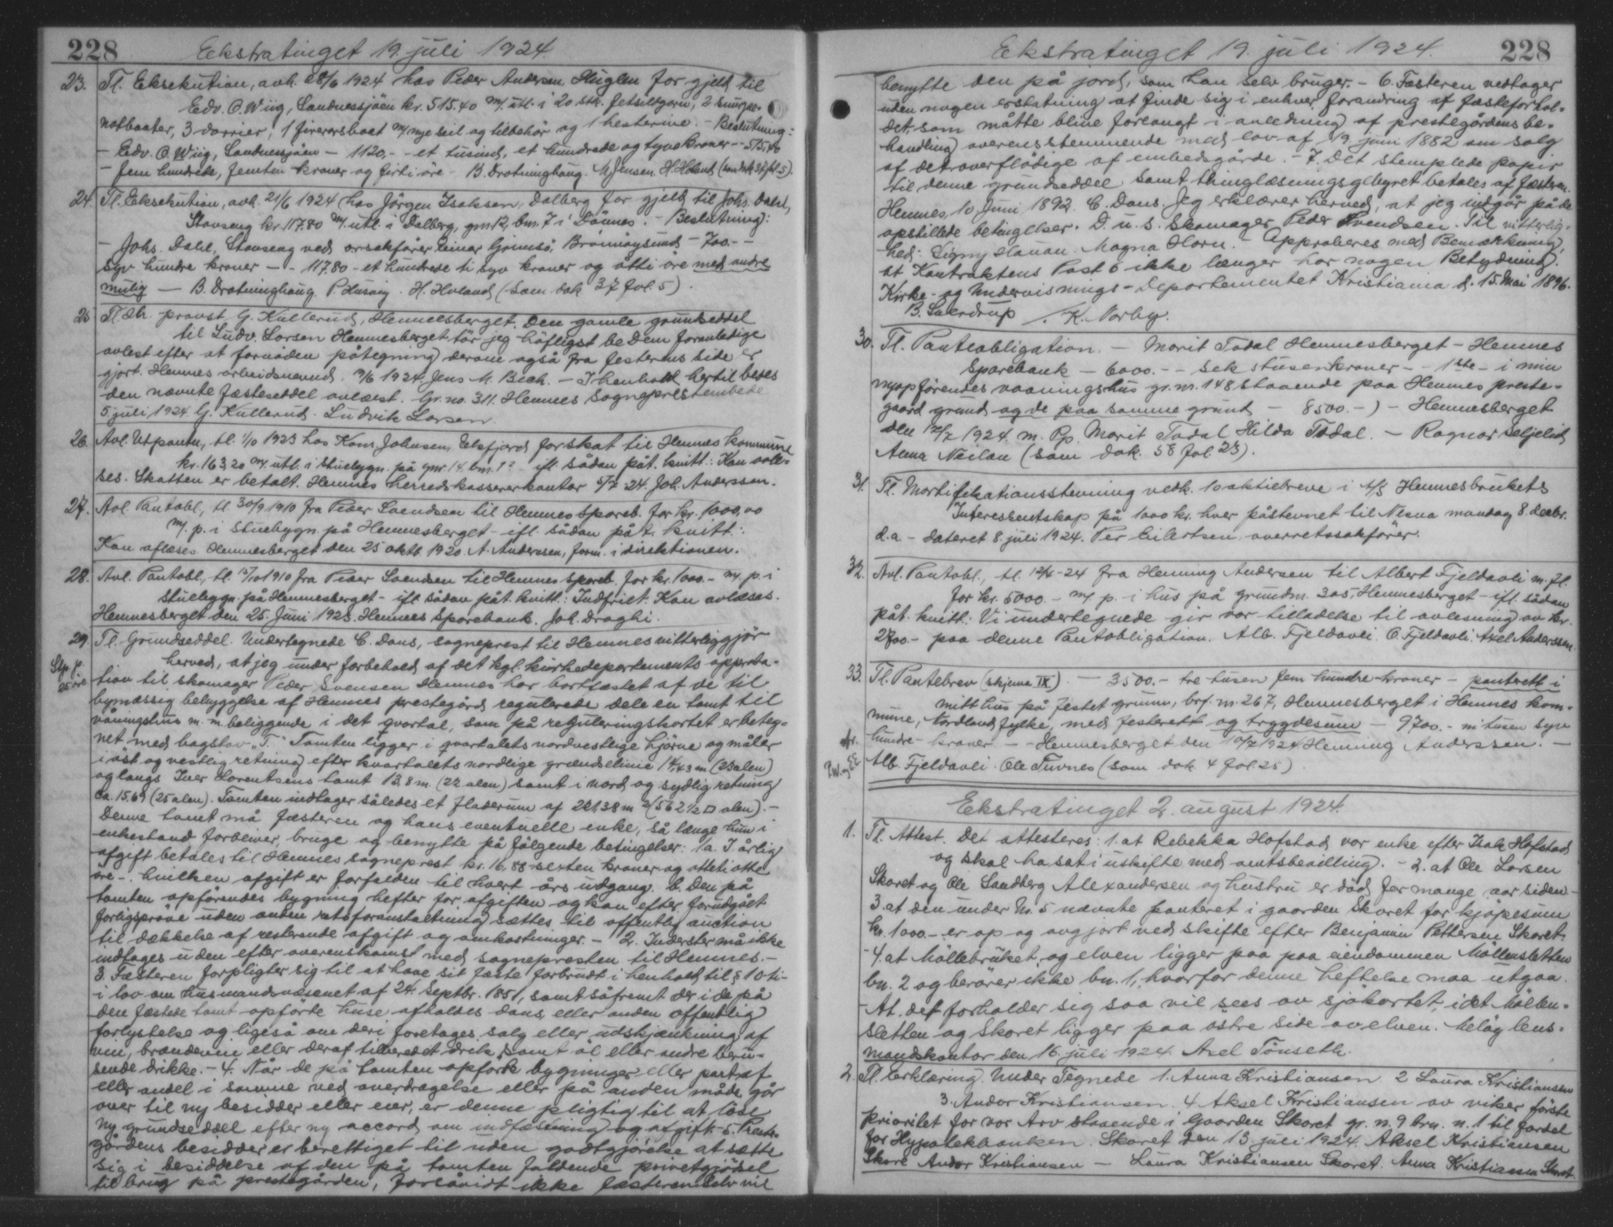 228 Ekstratinget 19. juli 1924.
23. Tl. Eksekution, avh. 28/6 1924 hos Peder Andersen Huglen for gjeld til
Edv. O. Wiig, Sandnessjöen kr. 515.40 m/ utl. i 20 stk. fetsildgarn, 2 snurpe-
notbaater, 3 dorrier, 1 firerorsbaat m/ nye seil og tilbehör og 1 - Beslutning:
- Edv. O. Wiig, Sandnessjöen - 1120.- - et tusind, et hundrede og tyve kroner - 515.40
- fem hundrede, femten kroner og förti öre - B. Drotninghaug. M. Jensen. H. Holand (som dok 34 fol 5).
24. Tl. Eksekution, avh. 21/6 1924 hos Jörgen Isaksen, Dalberg for gjeld til Johs. Dahl,
Stavseng kr. 117.80 m/ utl. i Dalberg, gnr. 12, bnr. 7 i Dönnes. - Beslutning:
- Johs. Dahl, Stavseng ved orrsakförer Einar Grimsö, Brönnöysund - 700.- -
syv hundre kroner - - 117.80 - et hundrede ti syv kroner og otti öre med andre
mulig - B. Drotninghaug P. Husöy. H. Holand (som dok 37 fol 5).
25. Tl. Hr. provst G. Kullerud, Hemnesberget. Den gamle grundseddel
til Ludv. Larsen Hemnesberget tör jeg höfligst be Dem foranledige
avlest efter at fornöden påtegning derom også fra festerens side er
gjort. Hemnes arbeidsnevnd. 1924 Jens M. Bech. - I henhold hertil bedes
den nævnte fæsteseddel avlæst. Gr. no. 311. Hemnes sogneprestembede
5 juli 1924 G. Kullerud. Ludvik Larsen.
26. Avl. Utpantn., tl. 1/10 1923 hos Konr. Johnsen, Elsfjord for skat til Hemnes kommune
kr. 163,20 m/ utl. i stuebygn. på gnr 14 bnr. 1 - ifl. sådan påt. kvitt: Kan avlæ-
ses. Skatten er betalt. Hemnes herredskassererkontor 4/7 24 Joh. Anderssen.
27. Avl. Pantobl., tl. 30/9 1910 fra Peder Svendsen til Hemnes Spareb. for kr. 1000,00
m/ p. i stuebygn. på Hemnesberget - ifl. sådan påt. kvitt:
Kan aflæses. Hemnesberget den 25 oktb. 1920. A. Anderssen, form. i direktionen.
28. Avl. Pantobl., tl. 15/10 1910 fra Peder Svendsen til Hemnes Spareb. for kr. 1000.- m/ p. i
stuebygn. på Hemnesberget - ifl. sådan påt. kvitt: Indfriet. Kan avlæses.
Hemnesberget den 25. Juni 1923. Hemnes Sparebank. Joh. Draghi.
29. Tl. Grundseddel. Undertegnede C. Dons, sogneprest til Hemnes vitterliggjör
herved, at jeg under forbehold af det kgl. kirkedepartements approba-
tion til skomager Peder Svensen Hemnes har bortfæstet af de til
bymæssig bebyggelse af Hemnes prestegård regulerede dele en tomt til
våningshus m. m. beliggende i det qvartal, som på reguleringskortet er beteg-
net med bogstav „F". Tomten ligger i qvartalets nordvestlige hjörne og måler
i öst og vestlig retning efter kvartalets nordlige grændselinie 14,43 m (23 alen)
og langs Iver Lorentsens tomt 13.8 m (22 alen) samt i nord og sydlig retning
ca. 15.69 (25 alen). Tomten indtager således et fladerum af 221.38 m² (562½ □ alen). -
Denne tomt må fæsteren og hans eventuelle enke, så længe hun i
enkestand forbliver, bruge og benytte på fölgende betingelser: 1 a. I årlig
afgift betales til Hemnes sogneprest kr. 16.88 sexten kroner og otteti otte
öre -. hvilken afgift er forfalden til hvert års udgang. b. Den på
tomten opförendes bygning hefter for afgiften og kan efter forudgået
forligspröve uden anden retsforanstaltning sættes til offentlig auction
til dækkelse af resterende afgift og omkostninger. - 2. Inderster må ikke
indtages uden efter overenskomst med sognepresten til Hemnes. -
3. Fæsteren forpligter sig til at have sit fæste forbrudt i henhold til § 10 ti -
i lov om husmandsvæsenet af 24. Septbr. 1851, samt såfremt der i de på
den fæstede tomt opförte huse afholdes dans eller anden offentlig
forlystelse og ligeså om deri foretages salg eller udskjænkning af
vin, brændevin eller deraf tilberedt drik, samt öl eller andre beru-
sende drikke. - 4. Når de på tomten opförte bygninger eller part af
eller andel i samme ved overdragelse eller på anden måde går
over til ny besidder eller eier, er denne pligtig til at löse
ny grundseddel efter ny accord om indfæstning og afgift. - 5. Preste-
gårdens besidder er berettiget til uden godtgjörelse at sætte
sig i besiddelse af den på tomten faldende privetgjödsel
til brug på prestegården, forsåvidt ikke fæsteren selv vil
Ekstratinget 19. juli 1924 228
benytte den på jord, som han selv bruger. - 6. Fæsteren vedtager
uden nogen erstatning at finde sig i enhver forandring af fæsteforhol-
det som måtte blive forlangt i anledning af prestegårdens be-
handling overensstemmende med lov af 1/9 juni 1882 om salg
af det overflödige af embedsgårde. - 7. Det stemplede papir
til denne grundseddel samt thinglæsningsgebyret betales af fæsteren.
Hemnes, 10 Juni 1892. C. Dons. Jeg erklærer herved, at jeg indgår på de
opstillede betingelser. D. u. s. Skomager Peder Svendsen. Til vitterlig-
hed: Signy Hauan. Magna Horn. - Approberes med Bemærkning,
at Kontraktens Post 6 ikke længer har nogen Betydning.
Kirke- og Undervisnings-Departementet Kristiania d. 15. Mai 1896.
B. Sverdrup /. K. Norby.
30. Tl. Pantobligation. - Marit Todal Hemnesberget - Hemnes
Sparebank - 6000.- - seks tusen kroner - - 1ste - i min
nyopförendes vaaningshus gr. nr. 148 staaende paa Hemnes preste-
gaard grund og de paa samme grund - 8500.-) - Hemnesberget
den 12/7 1924. m. Pp. Marit Todal Hilda Todal. - Ragnar Seljelid
Anna Neslan (som dok. 58 fol 23).
31. Tl. Mortifikationsstevning vedk. 10 aktiebreve i A/S Hemnesbrukets
Interessentskap på 1000 kr. hver påstevnet til Nesna mandag 8 decbr.
d.a - dateret 8 juli 1924. Per Eilertsen. overretssakförer.
32. Avl. Pantobl., tl. 12/6 - 24 fra Henning Andersen til Albert Fjeldavli m. fl.
for kr. 5000.- m/ p. i hus på grundnr. 305, Hemnesberget - ifl. sådan
påt. kvitt: Vi undertegnede gir vor tilladelse til avlesning av kr.
2700.- paa denne Pantobligation. Alb. Fjeldavli. O. Fjeldavli. Axel Anderssen
33. Tl. Pantebrev (skjema IX). - 3500.- tre tusen fem hundre kroner - panterett i
mitt hus på festet grunn, brf. nr 267, Hemnesberget i Hemnes kom-
mune, Nordland fylke, med festerett og trygdesum - 9700.- ni tusen syv
hundre kroner - - Hemnesberget den 12/7 1924 Henning Anderssen. -
Alb. Fjeldavli. Ole Tuvnes (som dok. 4 fol 25).
Ekstratinget 2. august 1924.
1. Tl. Attest. Det attesteres: 1. at Rebekka Hofstad var enke efter Isak Hofstad
og skal ha sat i uskifte med amtsbevilling. - 2. at Ole Larsen
Skoret og Ole Sandberg Alexandersen og hustru er död for mange aar siden -
3. at den under Nr. 5 nævnte panteret i gaarden Skoret for kjöpesum
kr. 1000.- er op og avgjort ved skifte efter Benjamin Pettersen Skoret.
- 4. at Möllebruket og elven ligger paa paa eiendommen Möllensletten
bn. 2 og berörer ikke bn. 1, hvorfor denne heftelse maa utgaa.
- At det forholder sig saa vil sees av sjökartet, idet Möllen-
sletten og Skoret ligger paa östre side av elven. Meløy lens-
mandskontor den 16. juli 1924. Axel Tönseth.
2. Tl. Erklæring. Under Tegnede 1. Anna Kristiansen 2 Laura Kristiansen
3. Andor Kristiansen. 4. Aksel Kristiansen av viker förste
Prioritet for vor Arv staaende i Gaarden Skoret gr. n. 9 brn. n. 1 til fordel
for Hypotekbanken. Skoret den 13. juli 1924. Aksel Kristiansen
Skore Andor Kristiansen - Laura Kristiansen Skoret. Anna Kristiansen Skoret.